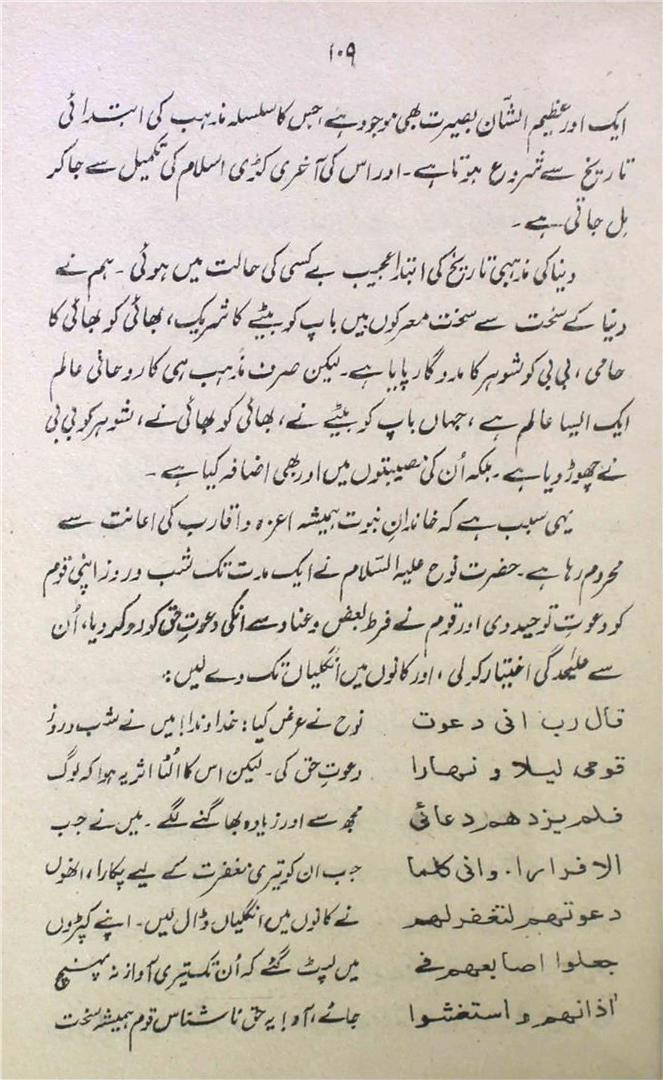 ۱۰۹
ایک اور عظیم الشّان بصیرت بھی موجود ہے، جس کا سلسلہ مذہب کی ابتدائی
تاریخ سے شروع ہوتا ہے۔ اور اس کی آخری کڑی اسلام کی تکمیل سے جا کر
مِل جاتی ہے۔
دنیا کی مذہبی تاریخ کی ابتدا عجیب بے کسی کی حالت میں ہوئی۔ ہم نے
دنیا کے سخت سے سخت معرکوں میں باپ کو بیٹے کا شریک، بھائی کو بھائی کا
حامی، بی بی کو شوہر کا مددگار پایا ہے۔ لیکن صرف مذہب ہی کا روحانی عالم
ایک ایسا عالم ہے، جہاں باپ کو بیٹے نے، بھائی کو بھائی نے، شوہر کو بی بی
نے چھوڑ دیا ہے۔ بلکہ اُن کی مصیبتوں میں اور بھی اضافہ کیا ہے۔
یہی سبب ہے کہ خاندانِ نبوت ہمیشہ اعزہ و اقارب کی اعانت سے
محروم رہا ہے۔ حضرت نوح علیہ السّلام نے ایک مدت تک شب و روز اپنی قوم
کو دعوتِ توحید دی اور قوم نے فرط بغض و عناد سے انکی دعوتِ حق کو رد کر دیا، اُن
سے علیٰحدگی اختیار کر لی، اور کانوں میں انگلیاں تک دے لیں:
قال رب انی دعوت
قومی لیلا و نہارا
فلم یزدھم دعائی
الا فرارا. وانی کلما
دعوتھم لتغفرلھم
جعلوا اصابعھم فی
اذانھم و استغشوا
نوح نے عرض کیا: خداوندا! میں نے شب و روز
دعوتِ حق کی۔ لیکن اس کا الٹا اثر یہ ہوا کہ لوگ
مجھ سے اور زیادہ بھاگنے لگے۔ میں نے جب
جب ان کو تیری مغفرت کے لیے پکارا، انھوں
نے کانوں میں انگلیاں ڈال لیں۔ اپنے کپڑوں
میں لپٹ گئے کہ اُن تک تیری آواز نہ پہنچ
جائے، آہ! یہ حق ناشناس قوم ہمیشہ سخت